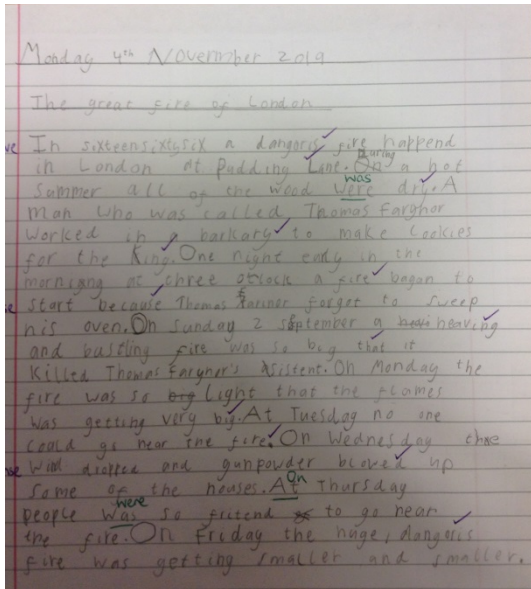 Monday 4th November 2019
The great fire of London
In sixteensixtysix a dangoris fire happend
in London at Pudding Lane. During a hot
was
Summer all of the wood were dry. A
man who was called Thomas Farynor
worked in a barkary to make Cookies
for the King. One night early in the
morniang at three oclock a fire began to
Start because Thomas farinor forget to sweep
his oven. On Sunday 2 September a heaving
and bustling fire was so big that it
killed Thomas Farynor's Asistent. On Monday the
fire was so big Light that the flames
was getting very big. At Tuesday no one
could go near the fire. On Wednesday the
wind dropped and gunpowder blowed up
On
Some of the houses. At Thursday
were
people was so fritend to go near
the fire. On Friday the huge, dangoris
fire was getting smaller and smaller.